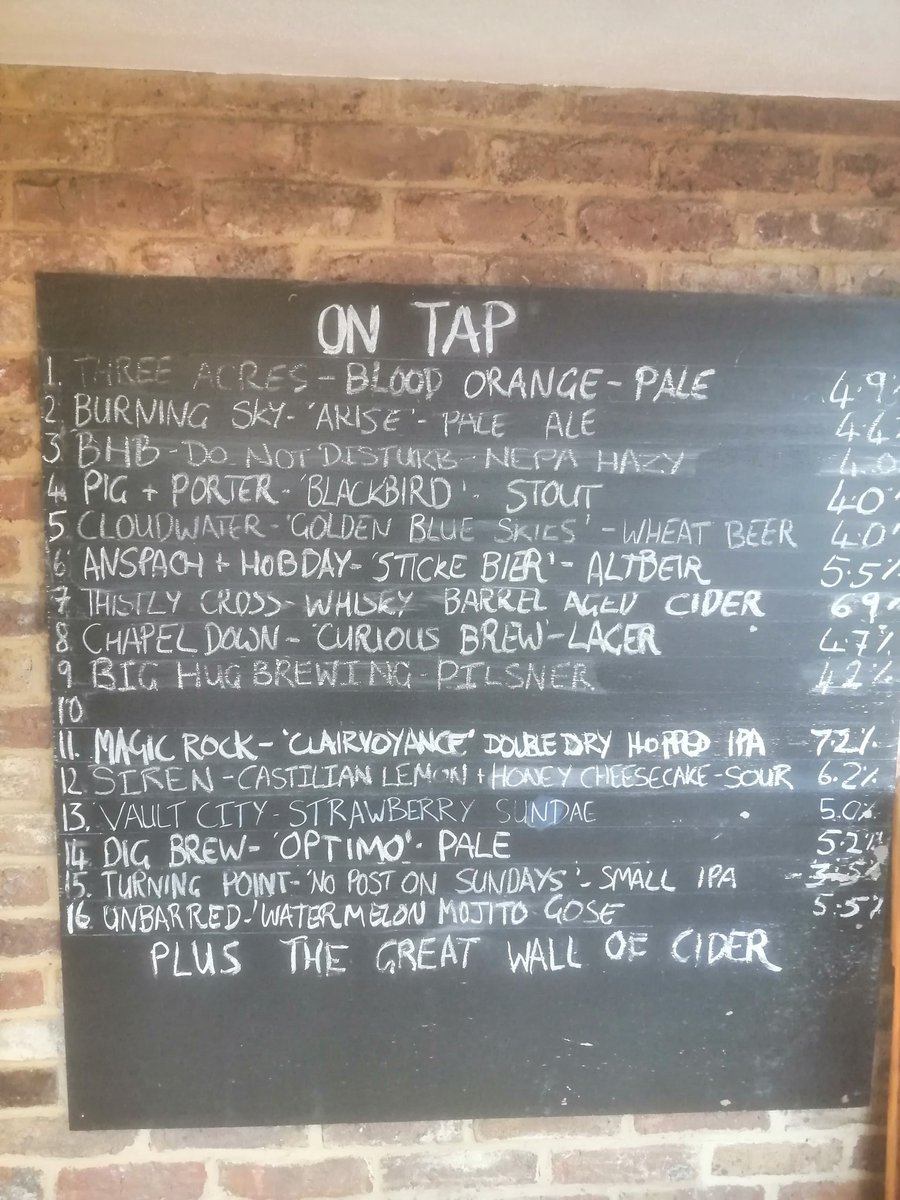 ON TAP
1. THREE ACRES - BLOOD ORANGE - PALE 4.9%
2 BURNING SKY - 'ARISE' - PALE ALE 4.4%
3 BHB - DO NOT DISTURB - NEPA HAZY 4.0
4 PIG + PORTER - 'BLACKBIRD' - STOUT 4.0%
5 CLOUDWATER - 'GOLDEN BLUE SKIES' - WHEAT BEER 4.0%
6 ANSPACH + HOBDAY - 'STICKE BIER' - ALTBEIR 5.5%
7 THISTLY CROSS - WHISKY BARREL AGED CIDER 6.9%
8 CHAPEL DOWN - 'CURIOUS BREW' - LAGER 4.7%
9 BIG HUG BREWING - PILSNER 4.2%
10
11. MAGIC ROCK - 'CLAIRVOYANCE' DOUBLE DRY HOPPED IPA 7.2%
12 SIREN - CASTILIAN LEMON + HONEY CHEESECAKE - SOUR 6.2%
13. VAULT CITY - STRAWBERRY SUNDAE 5.0%
14 DIG BREW - 'OPTIMO' - PALE 5.2%
15. TURNING POINT - 'NO POST ON SUNDAYS' - SMALL IPA
16 UNBARRED - 'WATERMELON MOJITO GOSE 5.5%
PLUS THE GREAT WALL OF CIDER